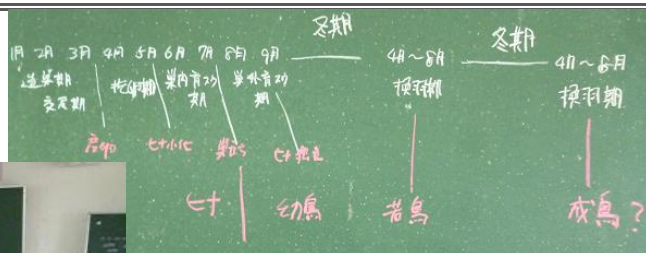 冬期
冬期
1月 2月 3月 4月 5月 6月 7月 8月 9月
4月～8月
4月～8月
造巣期
抱卵期
巣内育ヒナ期
巣外育ヒナ期
換羽期
換羽期
交尾期
産卵
ヒナふ化
巣立ち
ヒナ独立
ヒナ
幼鳥
若鳥
成鳥？